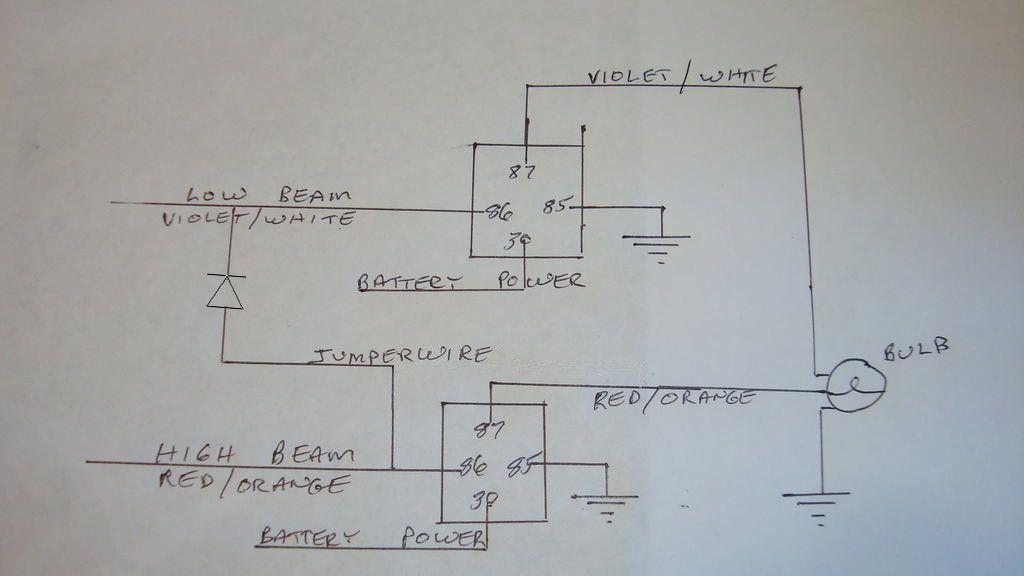 VIOLET/WHITE
87
LOW BEAM
VIOLET/WHITE
86 85
30
BATTERY POWER
JUMPERWIRE
BULB
RED/ORANGE
87
HIGH BEAM
86 85
RED/ORANGE
30
BATTERY POWER